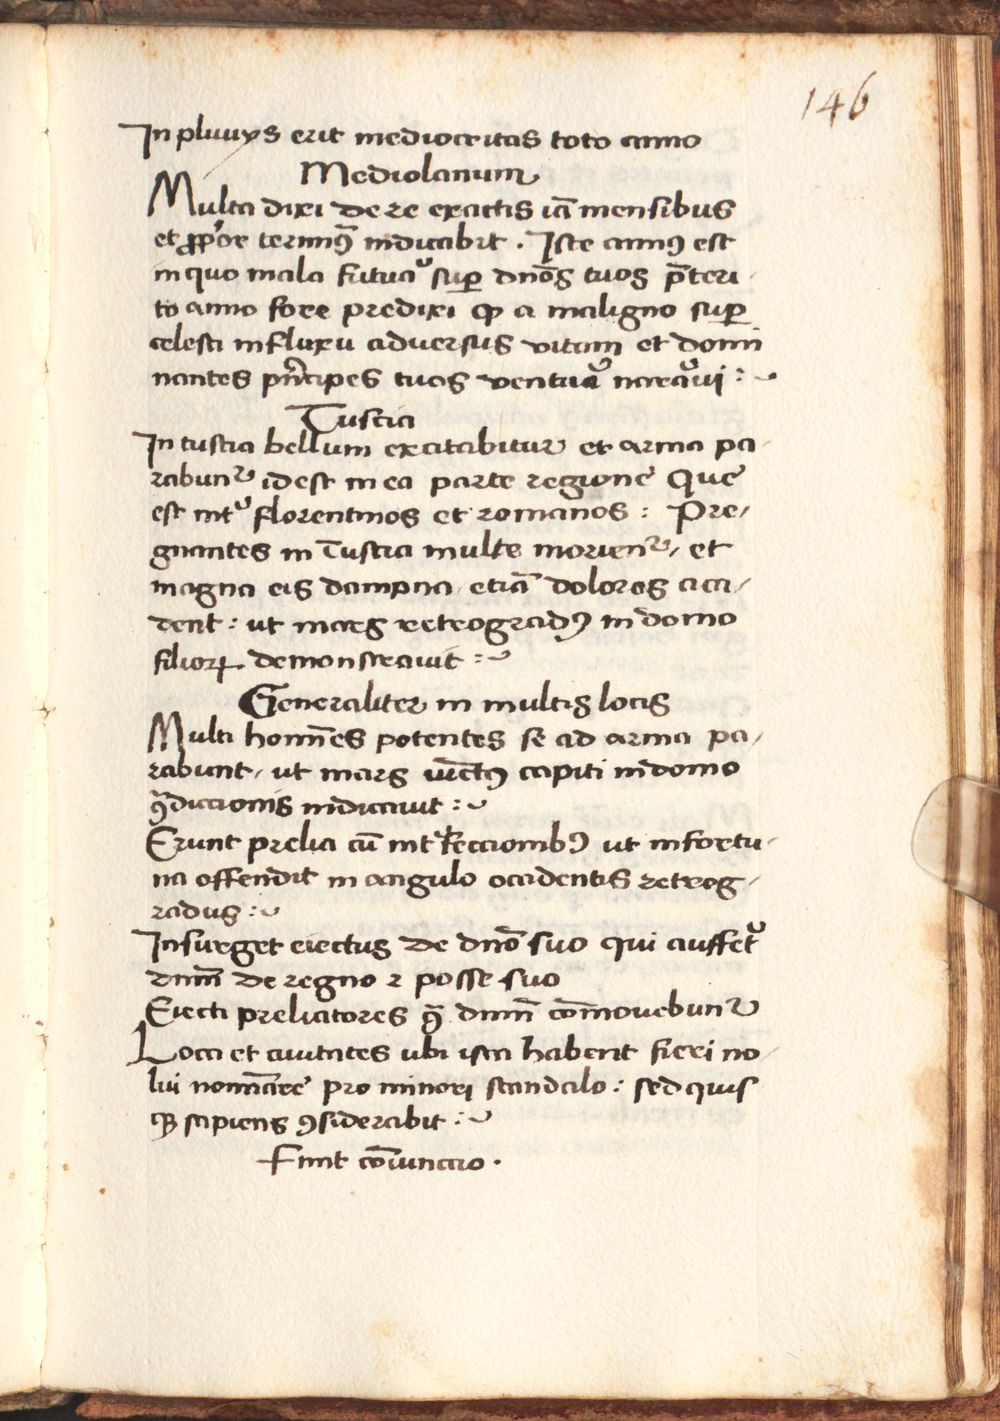 146
In pluuys erit mediocritas toto anno
Mediolanum
Multa dixi de re exactis iā mensibus
et terminꝰ indicabit. Iste annꝰ est
in quo mala futuᷓ suꝑ dnōs tuos p̄teri-
to anno fore predixi ꝙ a maligno suꝑ
celesti influxu aduersus vitam et domi
nantes pn̄cipes tuos ventuᷓ narᷓui :~
Tuscia
In tuscia bellum excitabitur et arma pa-
rabunᷣ idest in ea parte regione Que
est intᷣ florentinos et romanos : Pre/
gnantes in Tuscia multe morienᷣ, et
magna eis dampna etiā dolores acci/
dent : ut mars retrogradꝰ in domo
filioꝝ demonstrauit :~
Generaliter in multis locis
Multi homīes potentes se ad arma pa/
rabunt, ut mars iūctꝰ capiti in domo
ꝯ̄diccionis indicauit :~
Erunt prelia cū intᷣfeccionibꝰ ut infortu-
na offendit in angulo occidentis retrog/
radus :~
Insurget eiectus de dnō suo qui auffetᷣ
dnm̄ de regno ꝛ posse suo
Eiecti preliatores ꝯ̄ dnm̄ com̄ouebunᷣ
Loca et ciuitates ubi ista habent fieri no-
lui nomīare pro minori scandalo : sed quis
ꝙ sapiens ꝯsiderabit :~
Finit coniunctio.